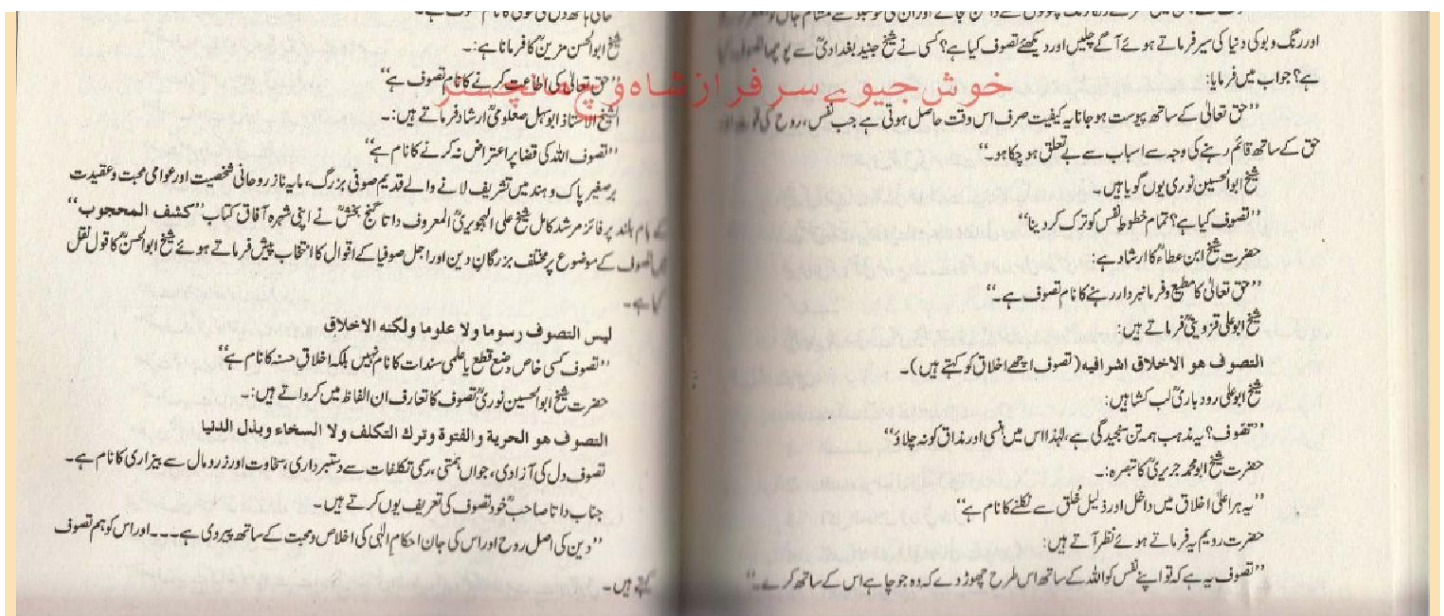 اور رنگ و بو کی دنیا کی سیر فرماتے ہوئے آگے چلیں اور دیکھئے تصوف کیا ہے؟ کسی نے شیخ جنید بغدادیؒ سے پوچھا تصوف کیا
ہے؟ جواب میں فرمایا:
خوش جیوے سرفراز شاہ
"حق تعالیٰ کے ساتھ پیوست ہو جانا یہ کیفیت صرف اس وقت حاصل ہوتی ہے جب نفس، روح کی قوت اور
حق کے ساتھ قائم رہنے کی وجہ سے اسباب سے بے تعلق ہو چکا ہو۔"
شیخ ابوالحسین نوری یوں گویا ہیں۔
"تصوف کیا ہے؟ تمام حظوظِ نفس کو ترک کر دینا"
حضرت شیخ ابن عطاءؒ کا ارشاد ہے:
"حق تعالیٰ کا مطیع و فرمانبردار رہنے کا نام تصوف ہے۔"
شیخ ابو علی قزوینیؒ فرماتے ہیں:
التصوف هو الاخلاق اشرافیه (تصوف اچھے اخلاق کو کہتے ہیں)۔
شیخ ابو علی رودباریؒ لب کشا ہیں:
"تصوف؟ یہ مذہب ہمہ تن سنجیدگی ہے، لہٰذا اس میں ہنسی اور مذاق کو نہ چلاؤ"
حضرت شیخ ابو محمد جریریؒ کا تبصرہ:۔
"یہ ہر اعلیٰ اخلاق میں داخل اور ذلیل خلق سے نکلنے کا نام ہے"
حضرت رویم یہ فرماتے ہوئے نظر آتے ہیں:
"تصوف یہ ہے کہ تو اپنے نفس کو اللہ کے ساتھ اس طرح چھوڑ دے کہ وہ جو چاہے اس کے ساتھ کرے۔"
شیخ ابوالحسن مزینؒ کا فرمانا ہے:۔
"حق تعالیٰ کی اطاعت کرنے کا نام تصوف ہے"
الشیخ الاستاذ ابو سہل صعلوکیؒ ارشاد فرماتے ہیں:۔
"تصوف اللہ کی قضا پر اعتراض نہ کرنے کا نام ہے"
برصغیر پاک و ہند میں تشریف لانے والے قدیم صوفی بزرگ، مایہ ناز روحانی شخصیت اور عوامی محبت و عقیدت
کے بام بلند پر فائز مرشد کامل شیخ علی الہجویریؒ المعروف داتا گنج بخشؒ نے اپنی شہرہ آفاق کتاب "کشف المحجوب"
میں تصوف کے موضوع پر مختلف بزرگانِ دین اور اجل صوفیا کے اقوال کا انتخاب پیش فرماتے ہوئے شیخ ابوالحسنؒ کا قول نقل
کیا ہے۔
لیس التصوف رسوما ولا علوما ولكنه الاخلاق
"تصوف کسی خاص وضع قطع یا علمی سندات کا نام نہیں بلکہ اخلاقِ حسنہ کا نام ہے"
حضرت شیخ ابوالحسین نوریؒ تصوف کا تعارف ان الفاظ میں کرواتے ہیں:۔
التصوف هو الحرية والفتوة وترك التكلف ولا السخاء وبذل الدنيا
تصوف دل کی آزادی، جواں ہمتی، رسمی تکلفات سے دستبرداری، سخاوت اور زر و مال سے بیزاری کا نام ہے۔
جناب داتا صاحبؒ خود تصوف کی تعریف یوں کرتے ہیں۔
"دین کی اصل روح اور اس کی جان احکامِ الٰہی کی اخلاص و محبت کے ساتھ پیروی ہے۔۔۔ اور اس کو ہم تصوف
کہتے ہیں۔